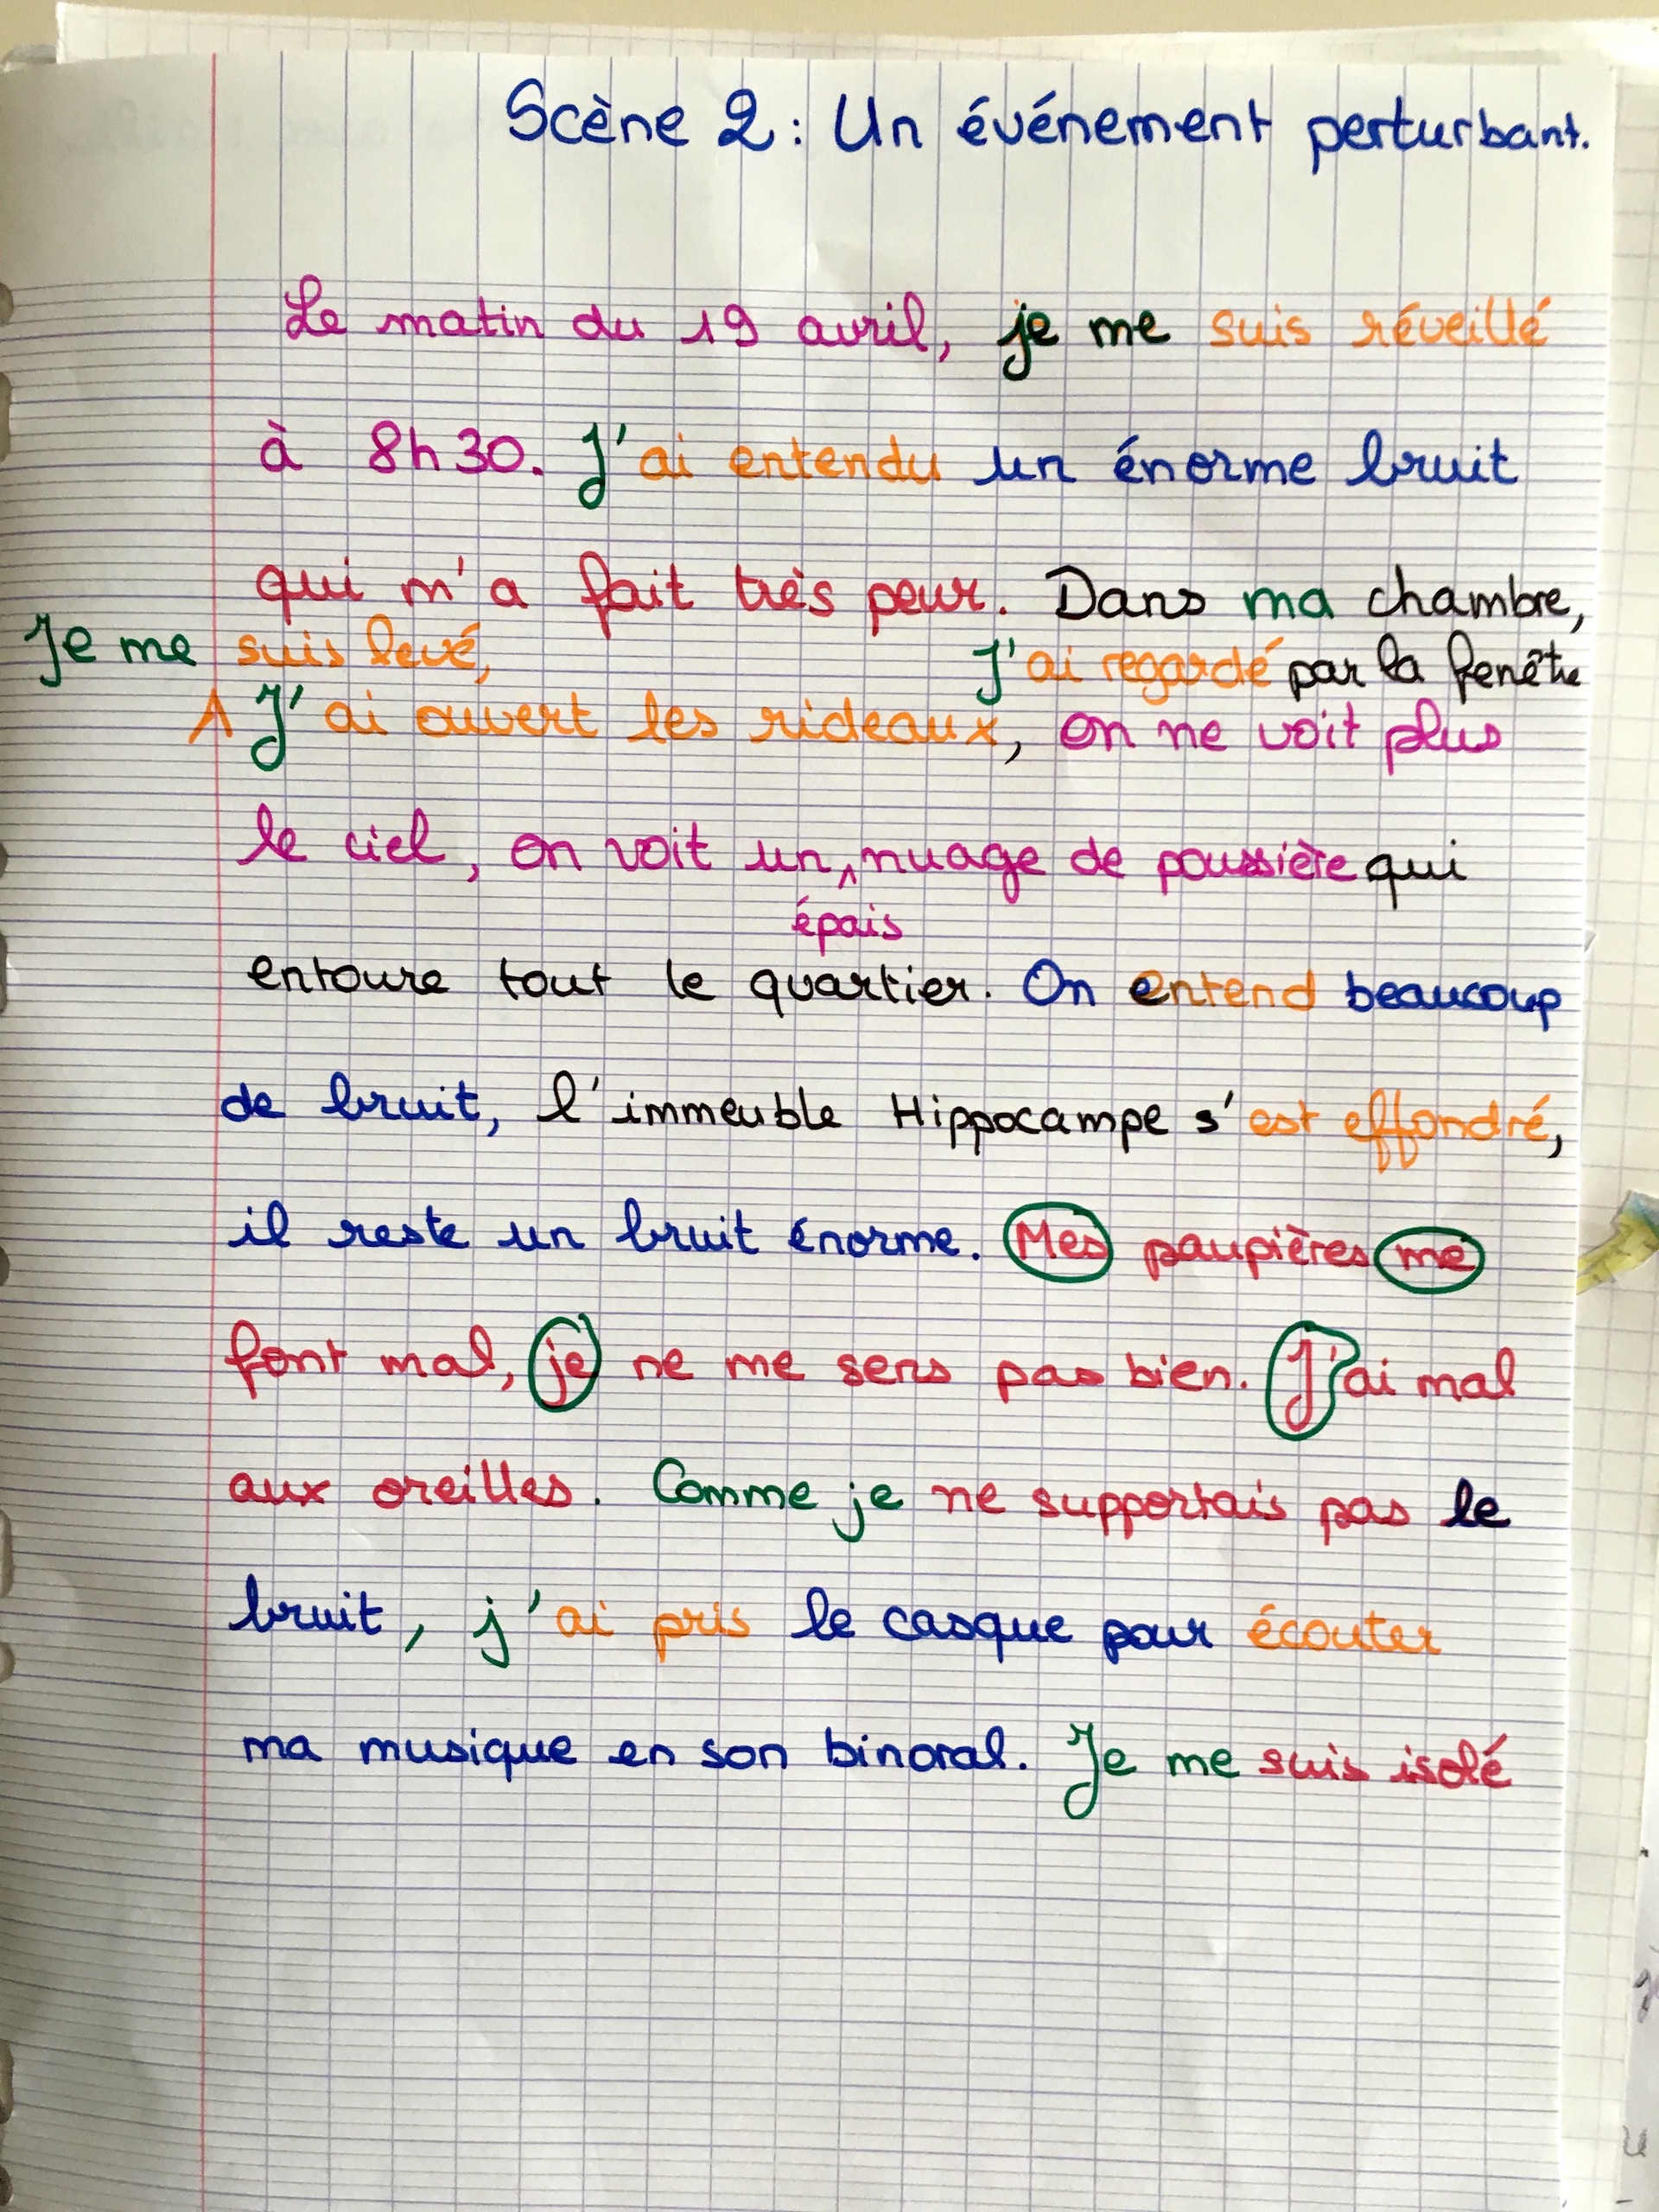 Scène 2 : Un événement perturbant.
Le matin du 19 avril, je me suis réveillé
à 8h30. J'ai entendu un énorme bruit
qui m'a fait très peur. Dans ma chambre,
Je me suis levé, J'ai regardé par la fenêtre
J'ai ouvert les rideaux, on ne voit plus
le ciel, on voit un nuage de poussière qui
épais
entoure tout le quartier. On entend beaucoup
de bruit, l'immeuble Hippocampe s'est effondré,
il reste un bruit énorme. Mes paupières me
font mal, je ne me sens pas bien. J'ai mal
aux oreilles. Comme je ne supportais pas le
bruit, j'ai pris le casque pour écouter
ma musique en son binoral. Je me suis isolé